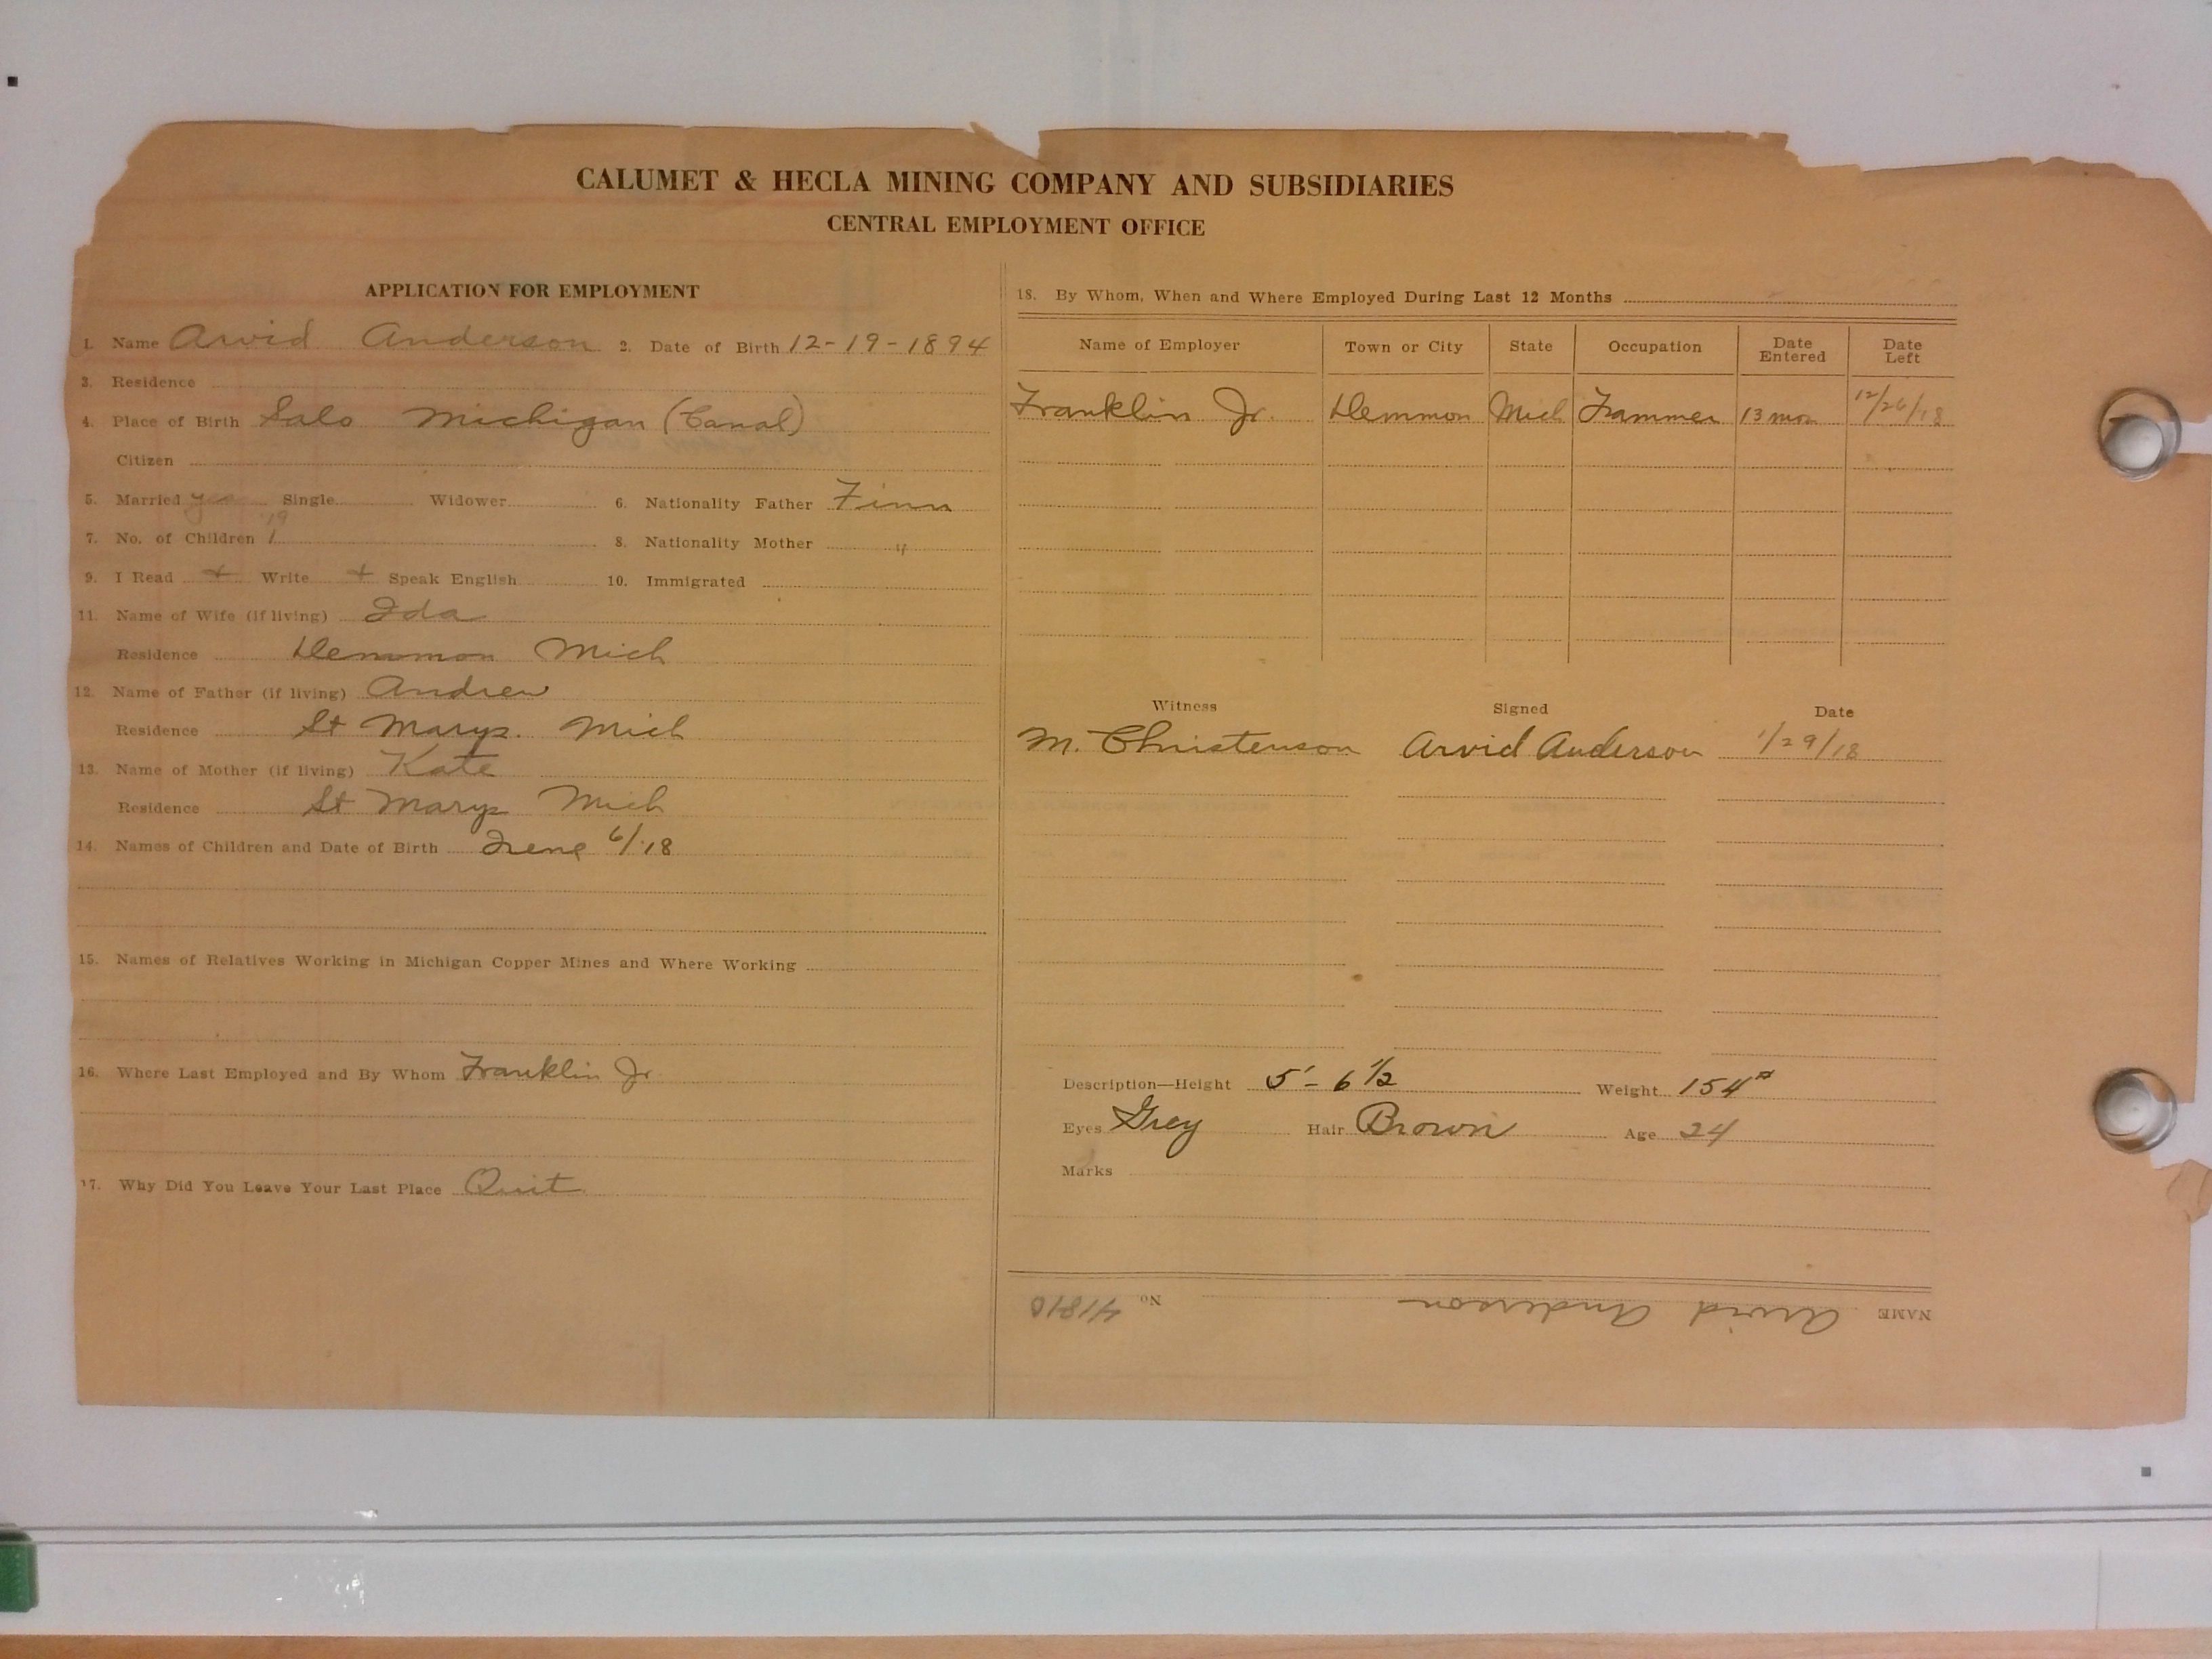 CALUMET & HECLA MINING COMPANY AND SUBSIDIARIES
CENTRAL EMPLOYMENT OFFICE
APPLICATION FOR EMPLOYMENT
1. Name Arvid Anderson 2. Date of Birth 12-19-1894
3. Residence
4. Place of Birth Salo Michigan (Canal)
Citizen
5. Married yes Single Widower 6. Nationality Father Finn
'19
7. No. of Children 1 8. Nationality Mother "
9. I Read + Write + Speak English 10. Immigrated
11. Name of Wife (if living) Ida
Residence Demmon Mich
12. Name of Father (if living) Andrew
Residence St Marys. Mich
13. Name of Mother (if living) Kate
Residence St Marys Mich
14. Names of Children and Date of Birth Irene 6/18
15. Names of Relatives Working in Michigan Copper Mines and Where Working
16. Where Last Employed and By Whom Franklin Jr
17. Why Did You Leave Your Last Place Quit
18. By Whom, When and Where Employed During Last 12 Months
Name of Employer Town or City State Occupation Date Entered Date Left
Franklin Jr. Demmon Mich Trammer 13 mon 12/26/18
Witness Signed Date
M. Christenson Arvid Anderson 1/29/18
Description—Height 5'- 6 1/2 Weight 154#
Eyes Grey Hair Brown Age 24
Marks
NAME Arvid Anderson No. 41810